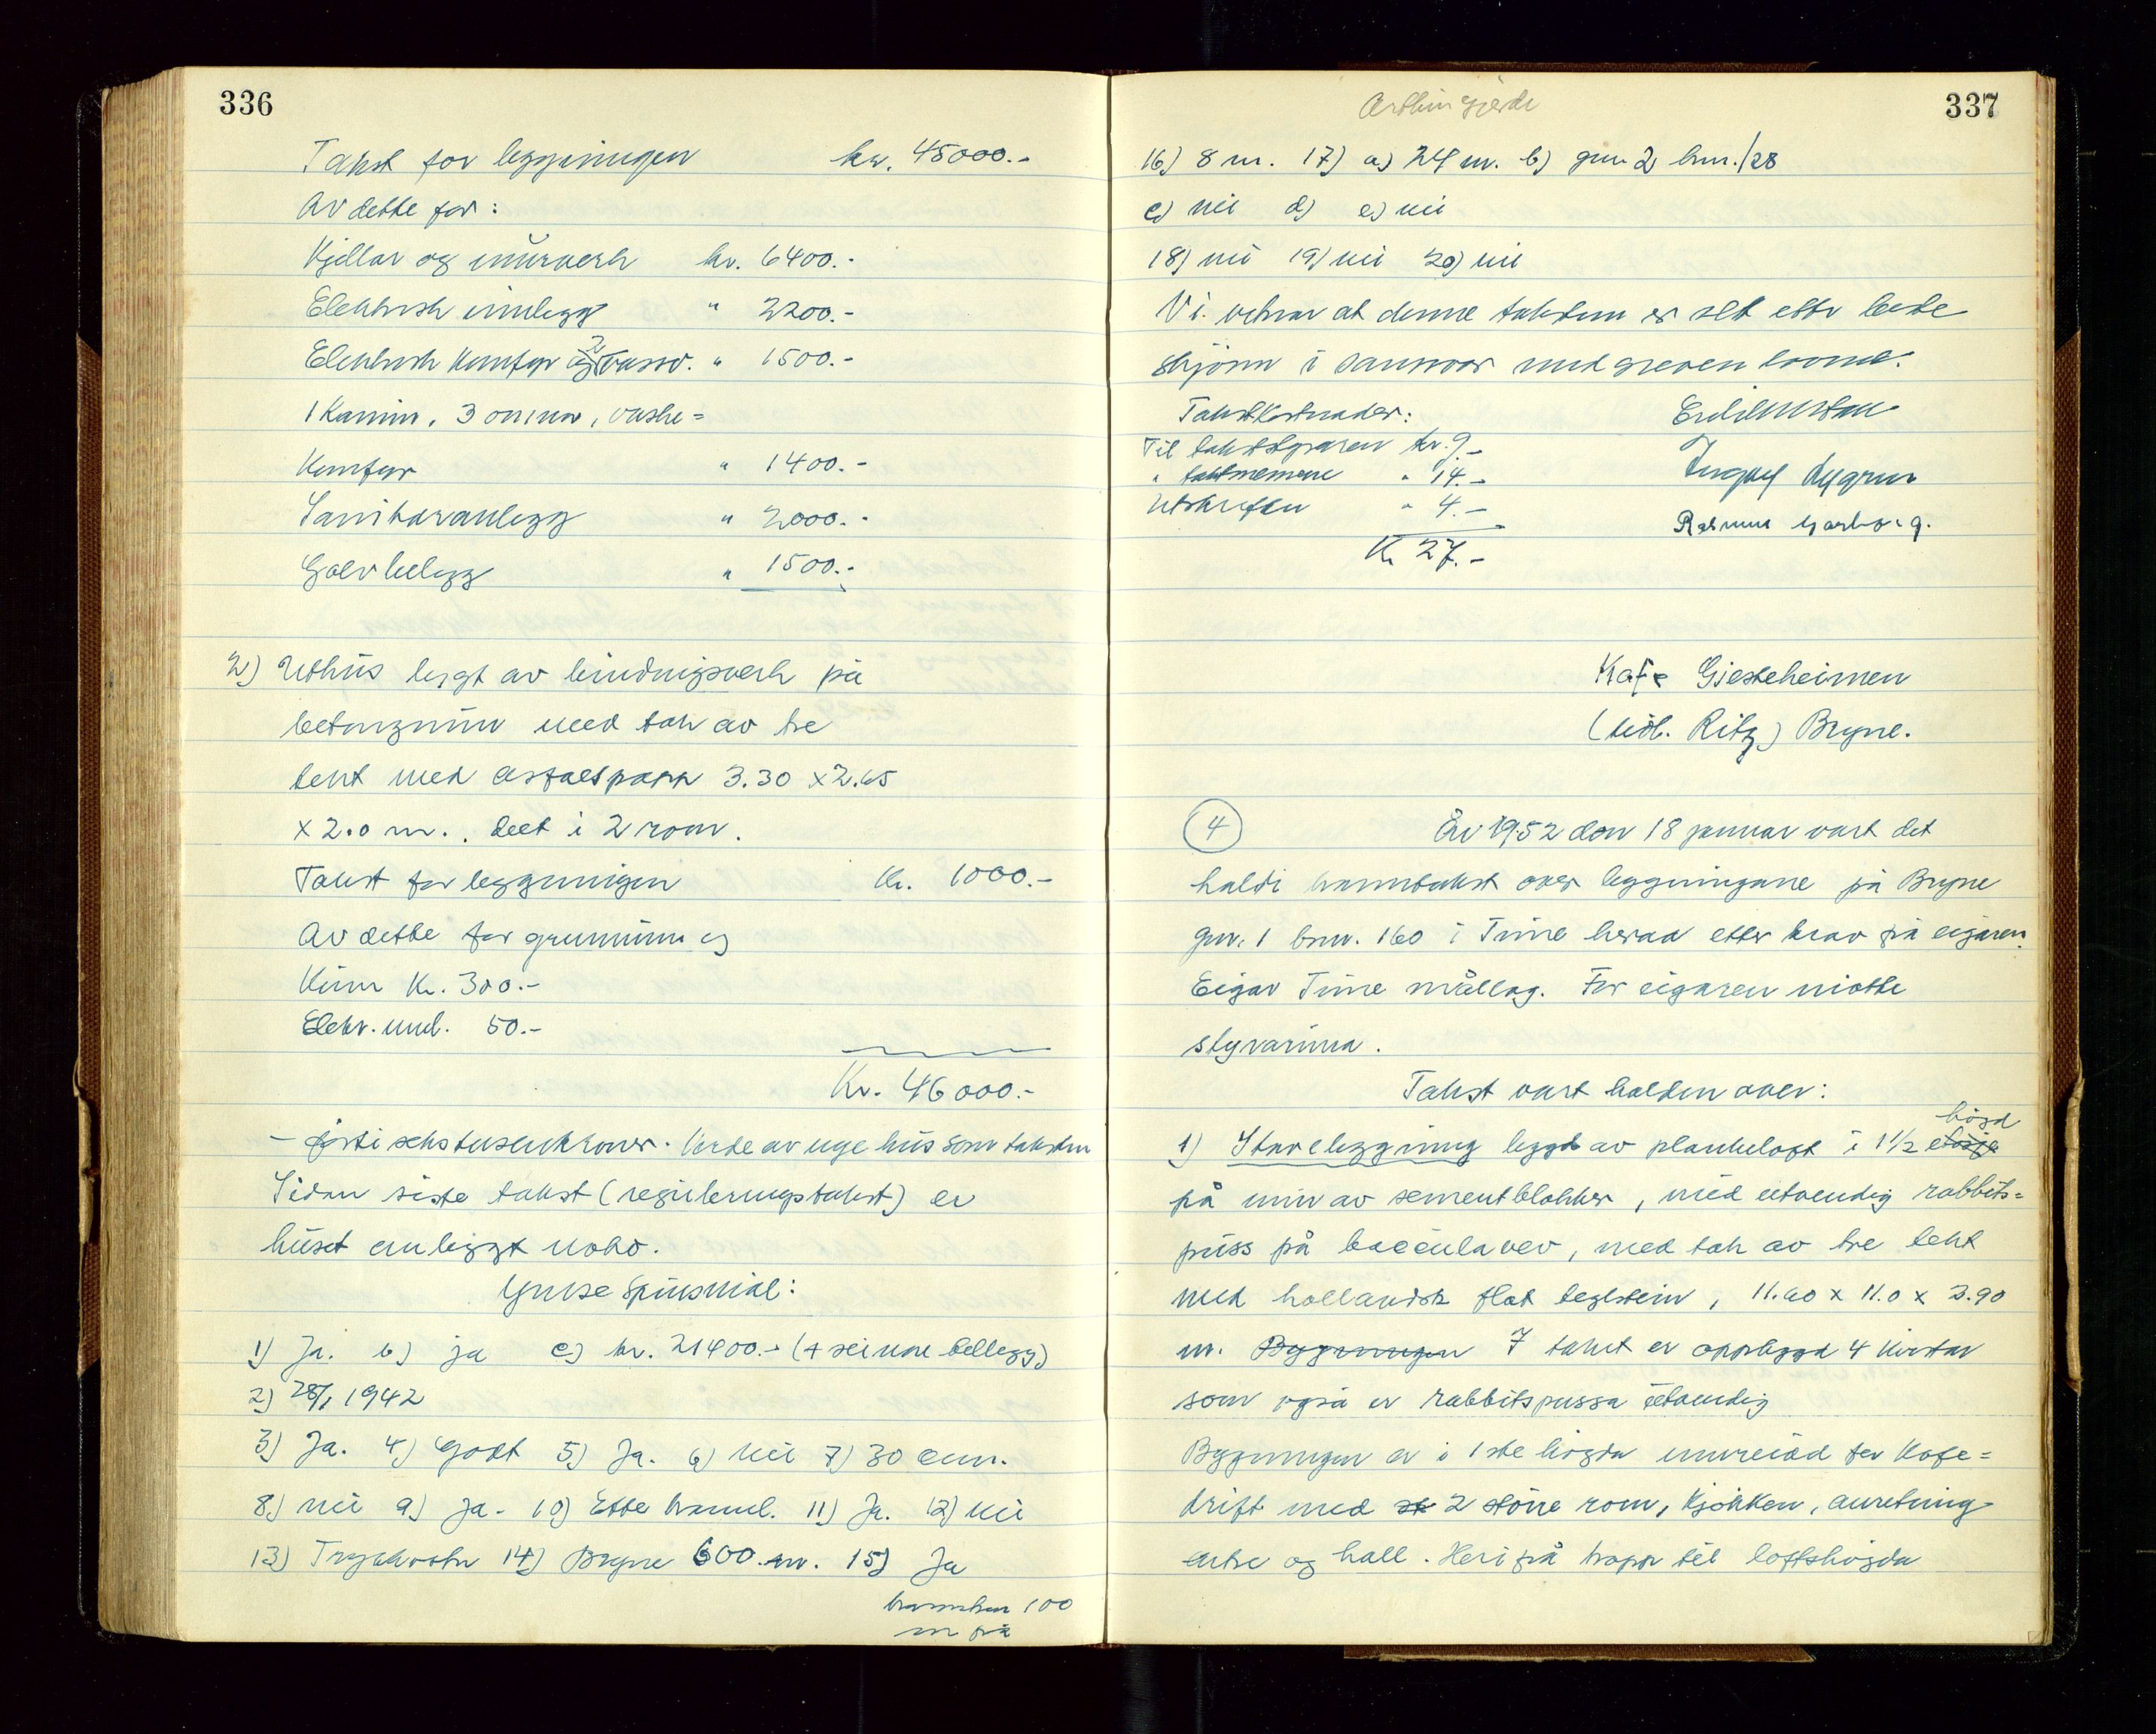 336
Takst for byggningen kr. 45000.-
Av dette for:
Kjellar og murverk kr. 6400.-
Elektrisk innlegg " 2200.-
Elektrisk komfyr og vassv. " 1500.-
1 Kamin, 3 omnar, vaske=
Komfyr " 1400.-
Sanitæranlegg " 2000.-
Golvbelegg " 1500.-
2) Uthus bygt av bindingsverk på
betongmur med tak av tre
tekt med asfaltpapp 3.30 x 2.65
x 2.0 m., delt i 2 rom.
Takst for byggningen kr. 1000.-
Av dette for grunnmur og
Kr. 300.-
Elektr. innl. 50.-
Kr. 46000.-
- førti sekstusenkroner. Verde av uge hus som taksten
Sidan siste takst (reguleringstakst) er
huset ombyggt
Ymse Spursmål:
1) Ja. b) ja c) kr. 21400.- (+ seinare tillegg)
2) 28/1 1942
3) Ja. 4) Godt 5) Ja. 6) nei 7) 30 cm.
8) nei 9) Ja. 10) Ette brannl. 11) Ja. 12) nei
13) Trykkvatn 14) Bryne 600 m. 15) Ja
100
m frå
Arthur Gjerde
337
16) 8 m. 17) a) 24 m. b) gnr 2 bnr. 1/28
c) nei d) e) nei
18) nei 19) nei 20) nei
Vi vitnar at denne taksten er sett etter beste
skjønn i samsvar med greven lovnad.
Takstkostnader:
Til takststyraren kr. 9.-
" takstmennene " 14.-
Utskriften " 4.-
Kr. 27.-
Ingolf Lygren
Rasmus Garborg.
Kafe Gjesteheimen
(tidl. Ritz) Bryne.
4 År 1952 den 18 januar vart det
haldi branntakst over byggningane på Bryne
gnr. 1 bnr. 160 i Time herad etter krav frå eigaren.
Eigar Time mållag. For eigaren møtte
styraren.
Takst vart halden over:
1) Storebyggning bygd av plankeloft i 1 1/2 høgd
på mur av sementblokker, med utvendig rabbits=
puss på bacculaver, med tak av tre tekt
med hollandsk flat teglstein, 11.60 x 11.0 x 3.90
m. Byggningen I taket er oppbygd 4 kvistar
som også er rabbitspussa utvendig
Byggningen er i 1ste høgda innreidd for Kafe=
drift med st 2 større rom, kjøkken, anretning
entre og hall. Herifrå trapp til loftshøgda